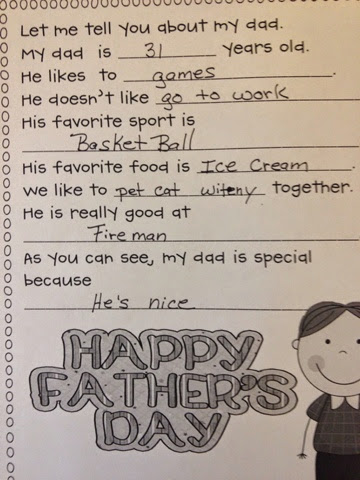 Let me tell you about my dad.
My dad is 31 years old.
He likes to games.
He doesn't like go to work
His favorite sport is
Basket Ball
His favorite food is Ice Cream.
We like to pet cat witeny together.
He is really good at
Fireman
As you can see, my dad is special
because
He's nice
HAPPY
FATHER'S
DAY